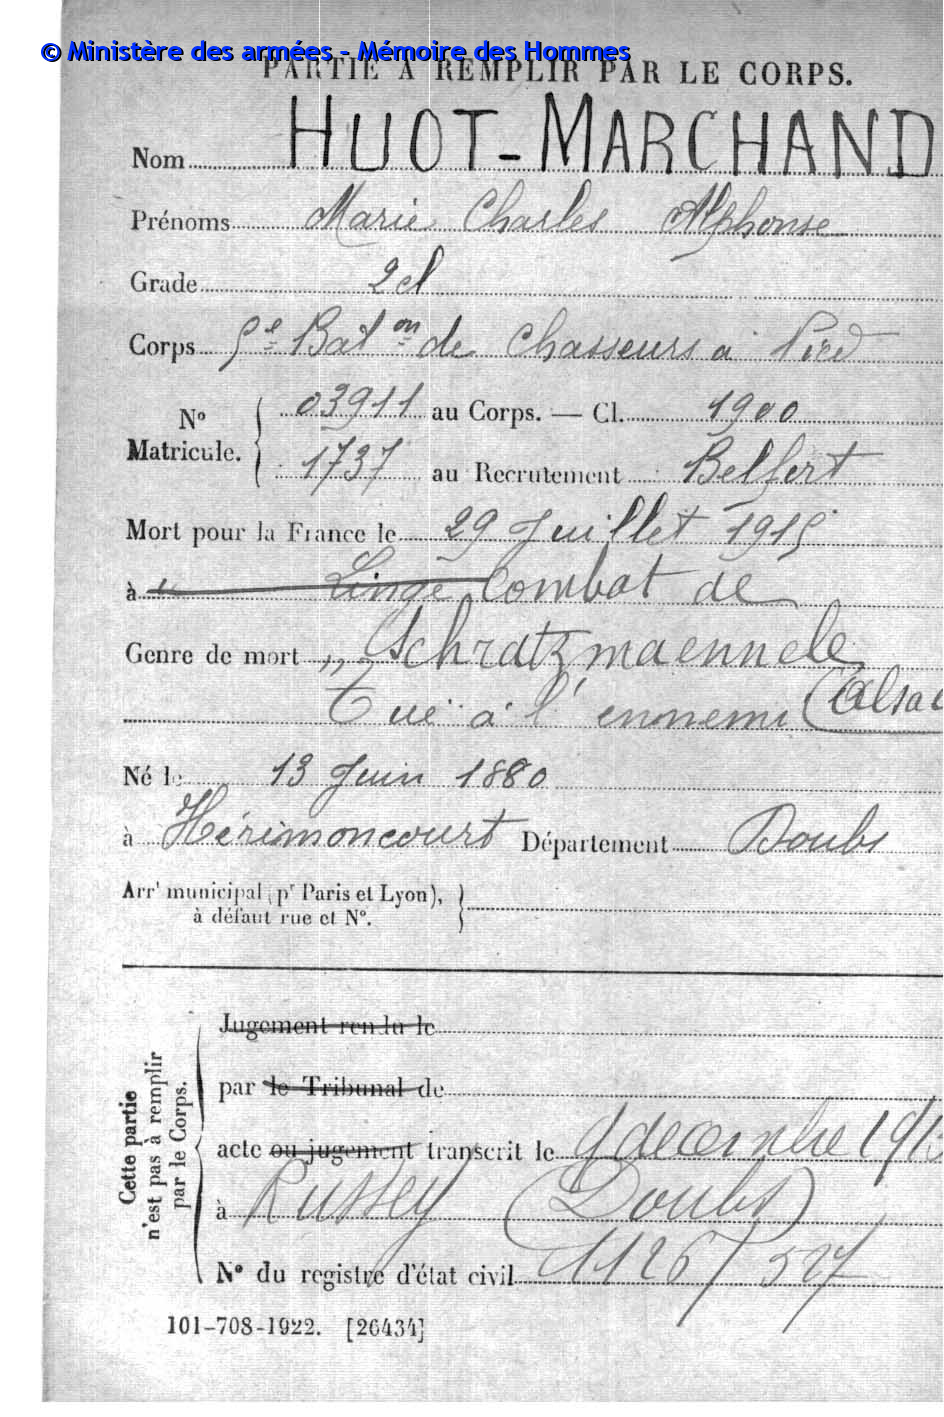 © Ministère des armées - Mémoire des Hommes
PARTIE À REMPLIR PAR LE CORPS.
Nom HUOT-MARCHAND
Prénoms Marie Charles Alphonse
Grade 2 cl
Corps 5e Bat on de Chasseurs à Pied
N° Matricule. 03911 au Corps. — Cl. 1900
1737 au Recrutement Belfort
Mort pour la France le 29 Juillet 1915
à Linge Combat de
Genre de mort Schratzmaennele
Tué à l'ennemi (Alsac
Né le 13 Juin 1880
à Hérimoncourt Département Doubs
Arr' municipal (pr Paris et Lyon),
à défaut rue et N°.
Cette partie
n'est pas à remplir
par le Corps.
Jugement rendu le
par le Tribunal de
acte ou jugement transcrit le décembre 191
à Russey (Doubs)
N° du registre d'état civil 1126/527
101-708-1922. [26434]